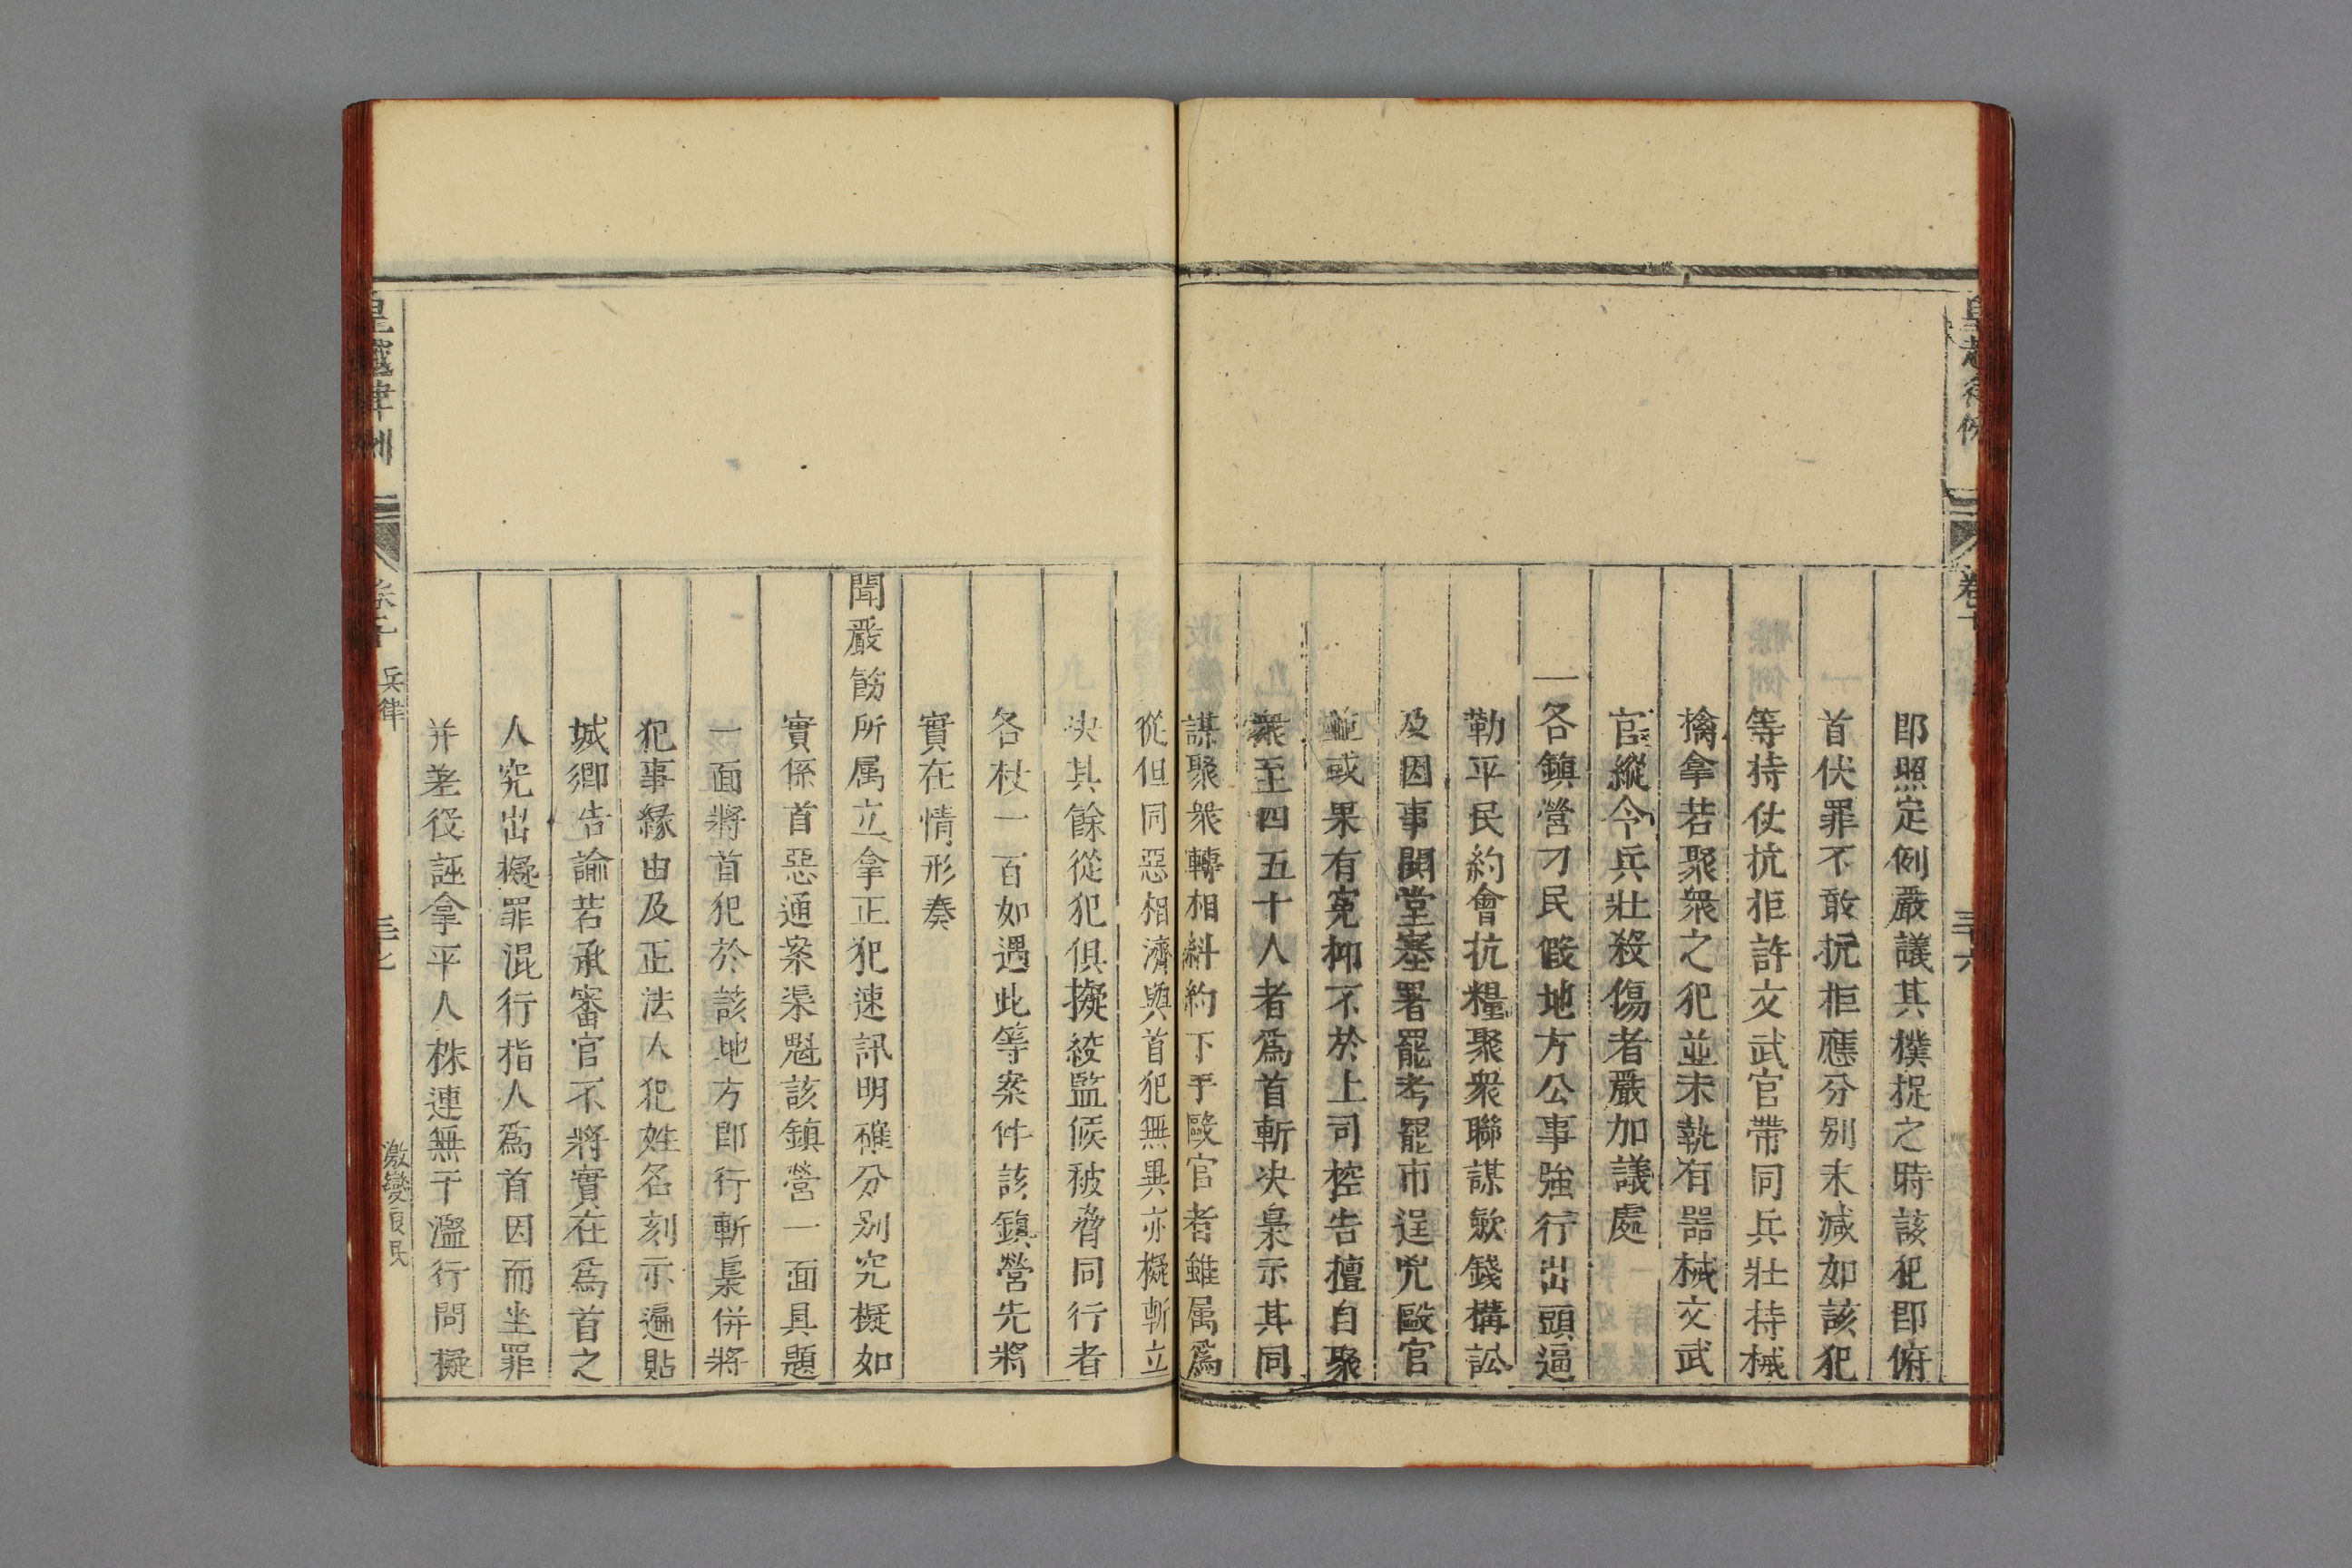 卽照定例嚴議其撲捉之時該犯卽俯
首伏罪不敢抗拒應分別末減如該犯
等持仗抗拒許文武官帶同兵壯持械
擒拿若聚衆之犯並未執有器械文武
官縱令兵壯殺傷者嚴加議處
一各鎮營刁民假地方公事強行出頭逼
勒平民約會抗糧聚衆聯謀歛錢構訟
及因事鬨堂塞署罷考罷市逞兇毆官
並或果有寃抑不於上司控告擅自聚
衆至四五十人者爲首斬决梟示其同
謀聚衆轉相糾約下手毆官者雖属爲
從但同惡相濟與首犯無異亦擬斬立
决其餘從犯俱擬絞監候被脅同行者
各杖一百如遇此等案件該鎮營先將
實在情形奏
聞嚴飭所属立拿正犯速訊明確分別究擬如
實係首惡通案渠魁該鎮營一面具題
一面將首犯於該地方卽行斬梟併將
犯事緣由及正法人犯姓名刻示遍貼
城鄉告諭若承審官不將實在爲首之
人究出擬罪混行指人爲首因而坐罪
并差役誣拿平人株連無干濫行問擬
皇越律例
兵律
激變良民